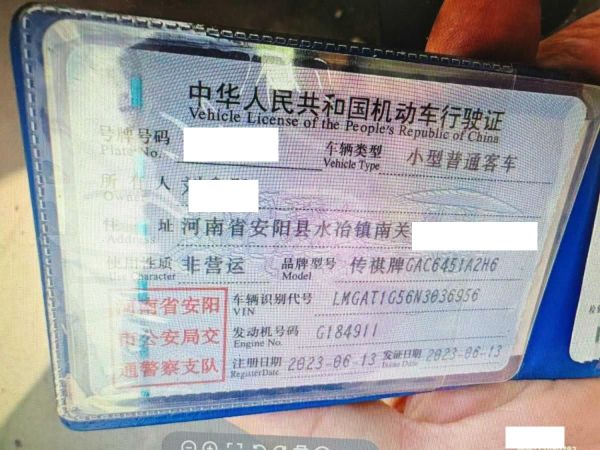 中华人民共和国机动车行驶证
Vehicle License of the People's Republic of China
号牌号码 车辆类型 小型普通客车
Plate No. Vehicle Type
所有人
Owner
住址 河南省安阳县水冶镇南关
Address
使用性质 非营运 品牌型号 传祺牌GAC6451A2H6
Use Character Model
河南省安阳 车辆识别代号 LMGAT1G56N3036956
VIN
市公安局交 发动机号码 G184911
Engine No.
通警察支队 注册日期 2023-06-13 发证日期 2023-06-13
Register Date Issue Date